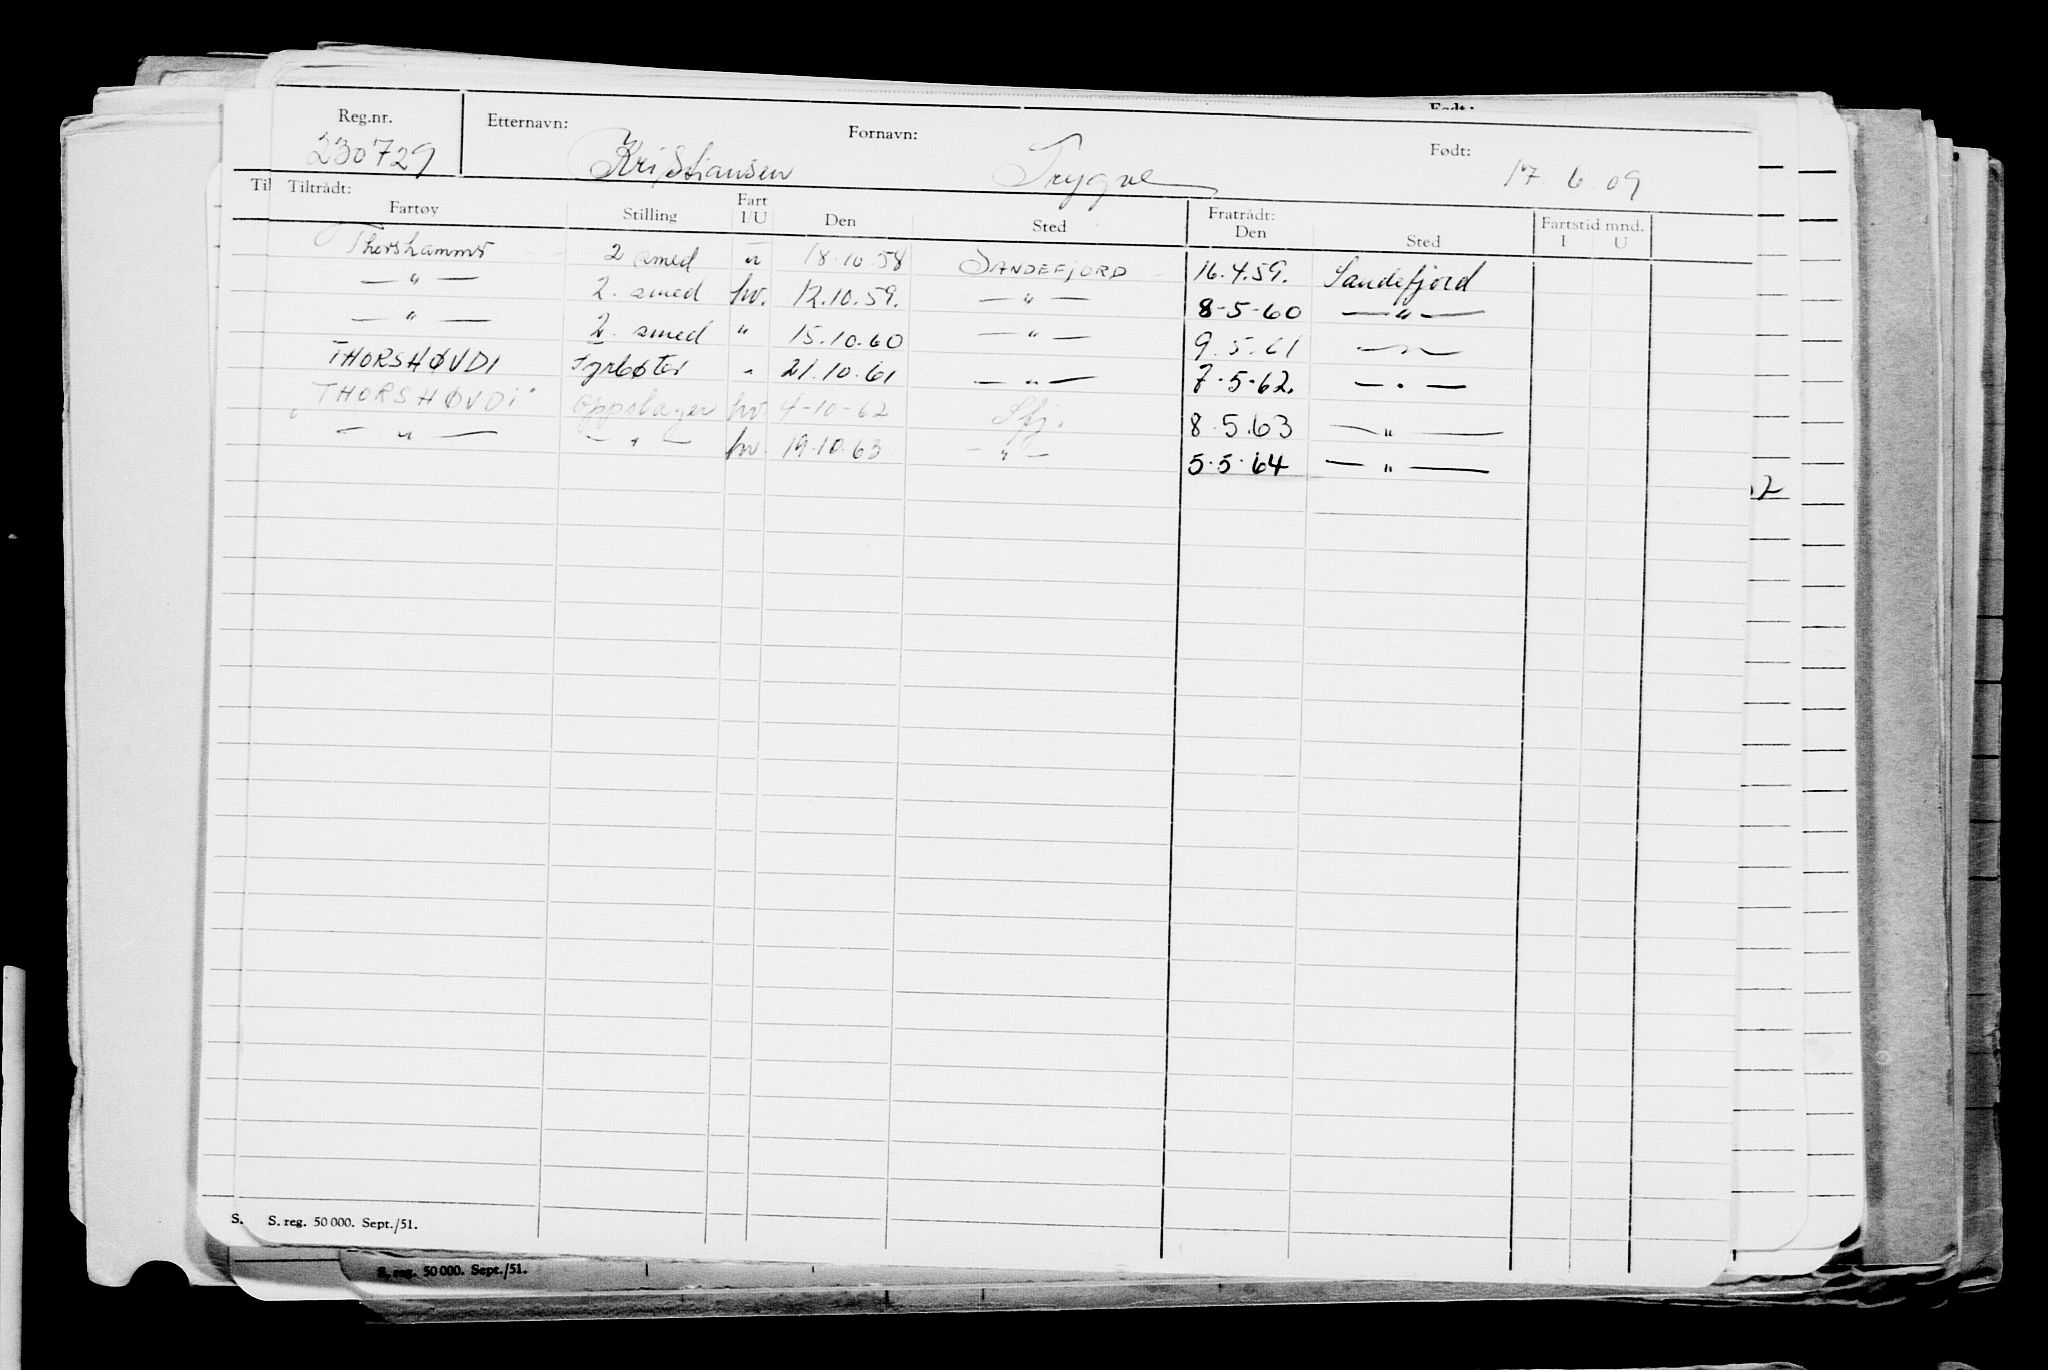 Reg.nr. Etternavn: Fornavn: Født:
230729 Kristiansen Trygve 17. 6. 09
Til Tiltrådt: Fratrådt:
Fartøy Stilling Fart I/U Den Sted Den Sted Fartstid mnd. I U
Thorshammer 2 smed u 18.10.58 SANDEFJORD 16.4.59. Sandefjord
— " — 2. smed hv. 12.10.59. — " — 8-5-60 — " —
— " — 2. smed " 15.10.60 — " — 9.5.61 — " —
THORSHØVDI Fyrbøter " 21.10.61 — " — 7-5-62. — " —
"THORSHØVDI" Oppslager hv. 4-10-62 Sfj. 8.5.63 — " —
— " — — " — hv. 19.10.63 — " — 5-5-64 — " —
2
S. S. reg. 50 000. Sept./51.
S. reg. 50 000. Sept./51.